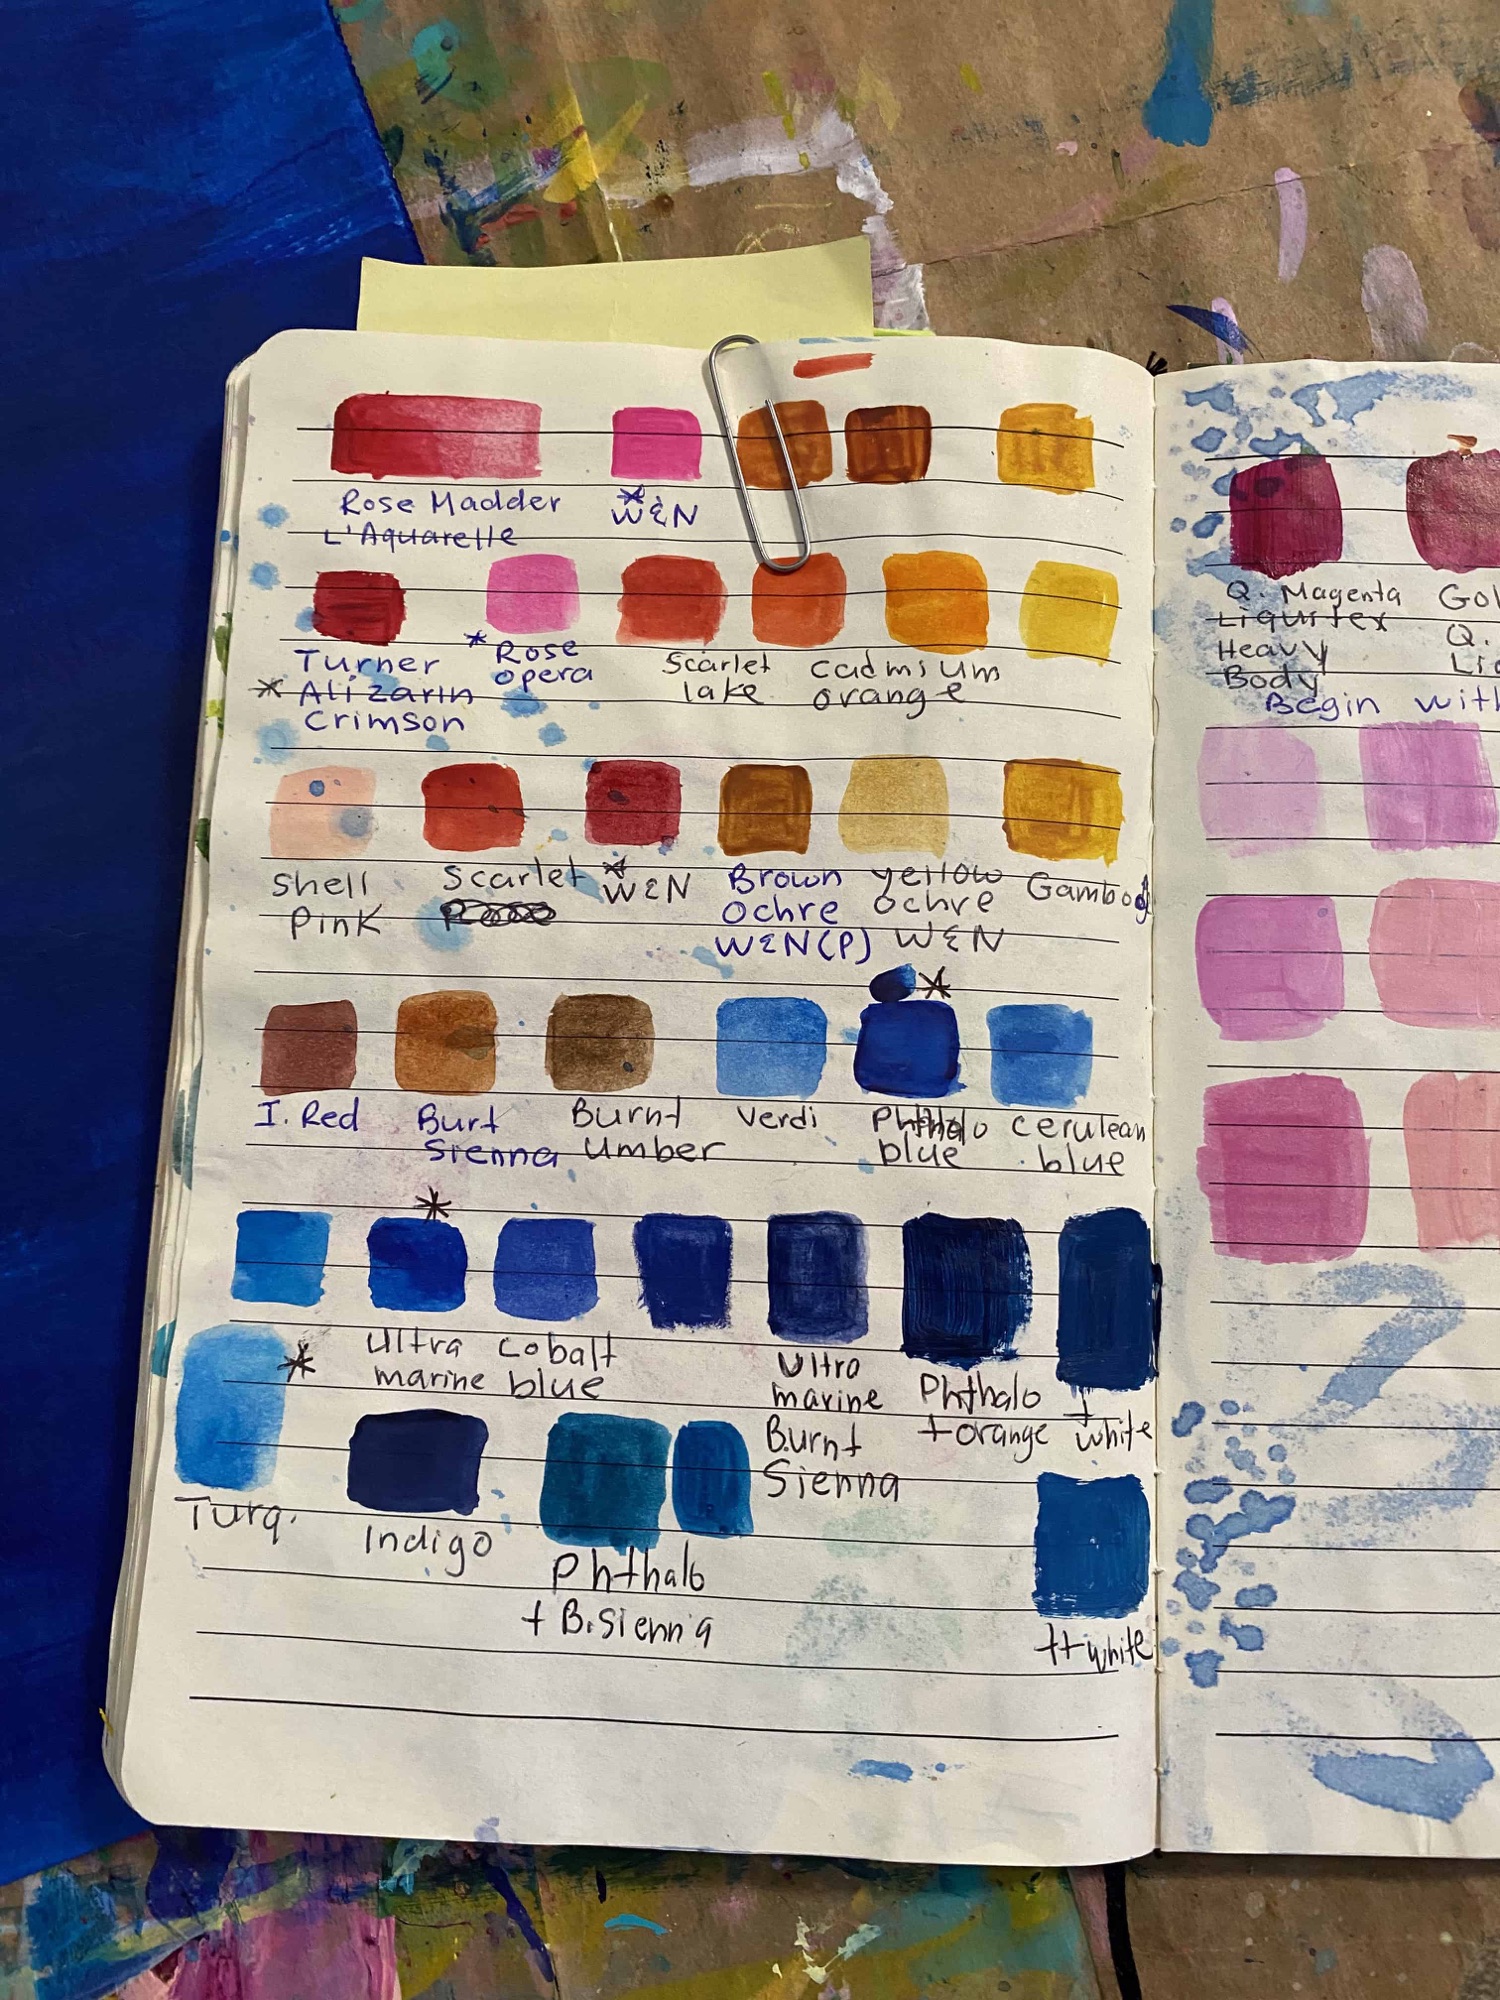 Rose Madder
L'Aquarelle
* W&N
Turner
* Alizarin
Crimson
* Rose
opera
Scarlet
lake
cadmium
orange
Shell
Pink
Scarlet
* W&N
Brown
Ochre
W&N(P)
yellow
ochre
W&N
Gambog
*
I. Red
Burt
Sienna
Burnt
Umber
Verdi
Phthalo
blue
cerulean
blue
*
Ultra
marine
cobalt
blue
Ultra
marine
Burnt
Sienna
Phthalo
+orange
+
white
*
Turq.
Indigo
Phthalo
+ B.Sienna
++white
Q. Magenta
Liquitex
Heavy
Body
Gol
Q.
Begin with